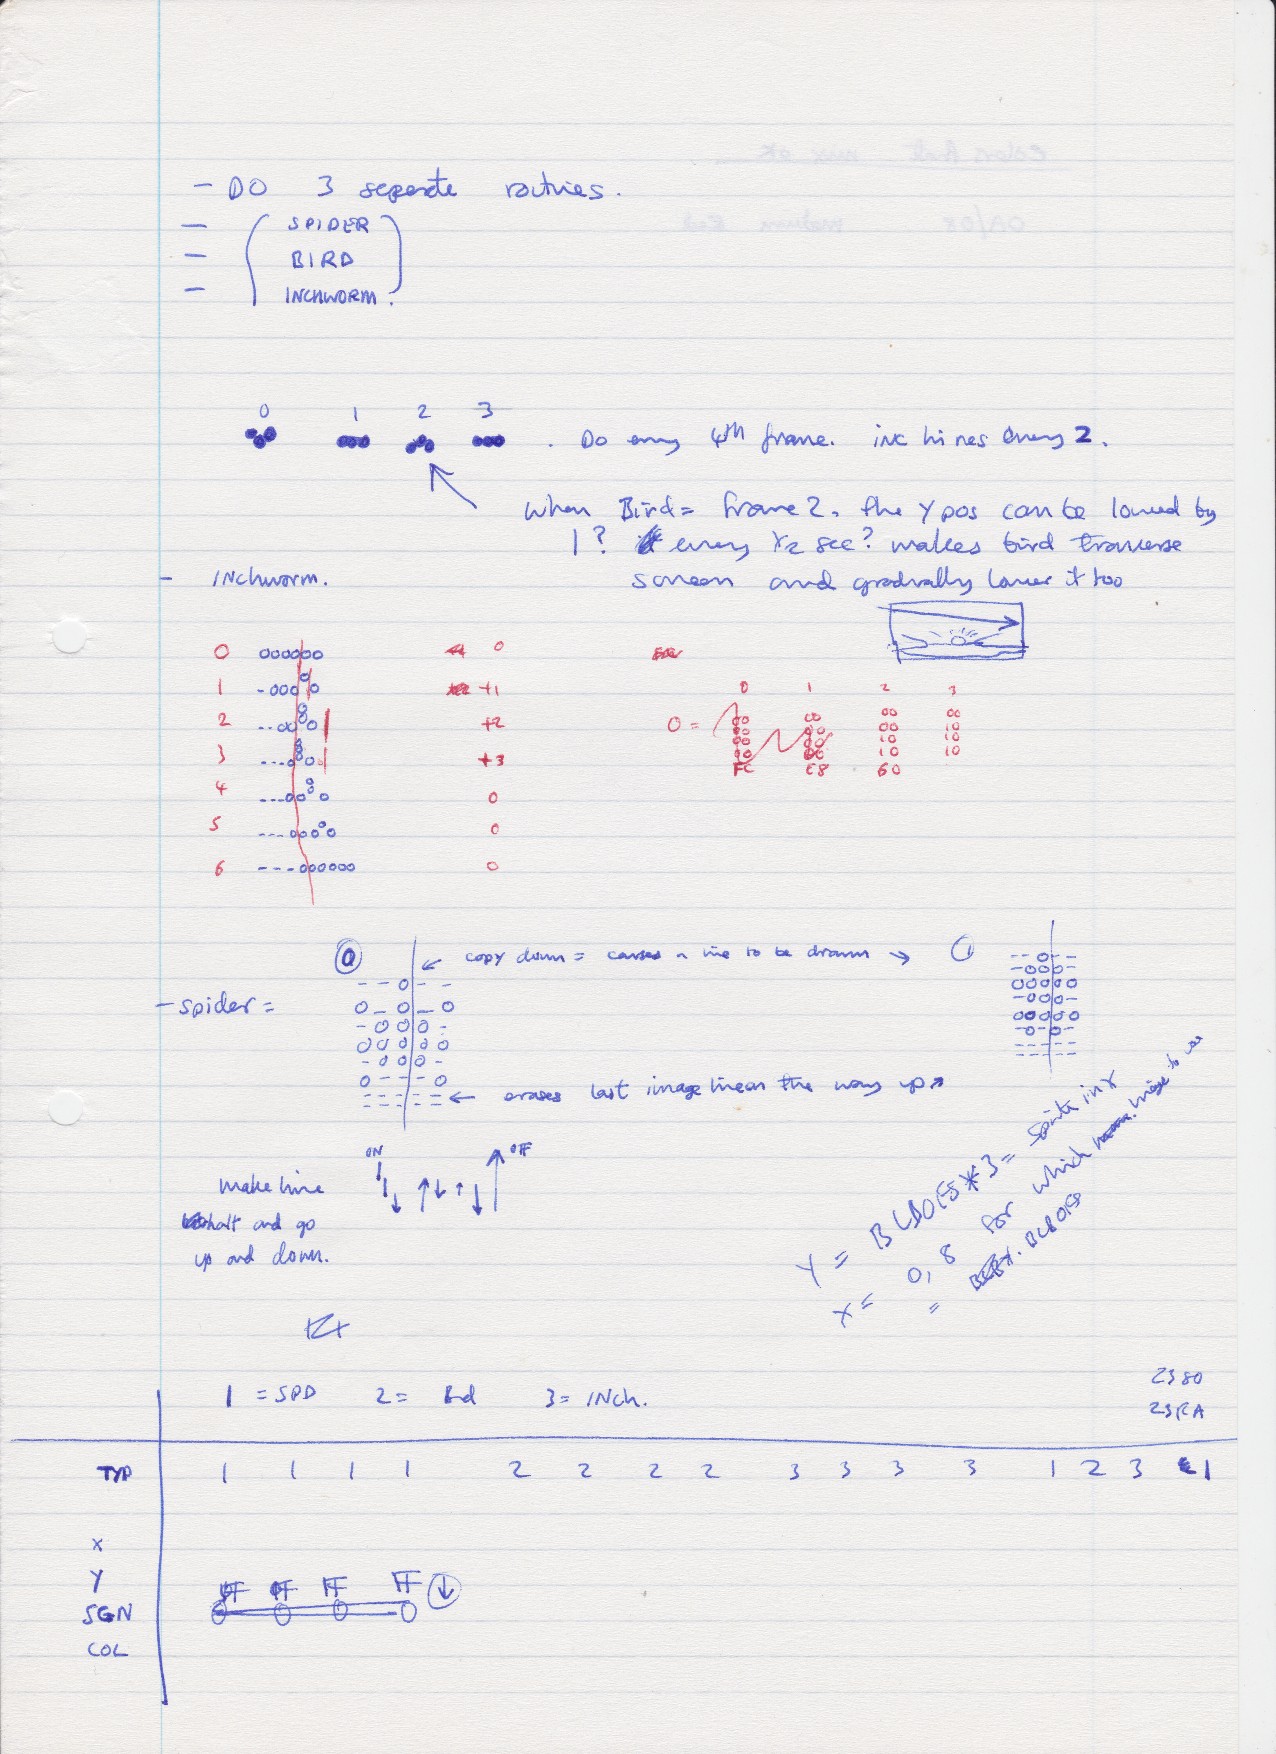 - DO 3 separate routines.
- SPIDER
- BIRD
- INCHWORM.
0 1 2 3
. Do every 4th frame. inc hi res every 2.
When Bird = frame 2, the Y pos can be lowered by
1? every 1/2 sec? makes bird traverse
screen and gradually lower it too
- INchworm.
0 0
1 +1
2 +2
3 +3
4 0
5 0
6 0
0 1 2 3
0 =
FC E8 60
0 ← copy down = causes a line to be drawn → 1
- spider =
← erases last image line on the way up
ON OFF
make line
halt and go
up and down.
Y = *3 = sprite in x
X = 0, 8 for which
=
1 = SPD 2 = Bird 3 = INCh.
2380
TYP 1 1 1 1 2 2 2 2 3 3 3 3 1 2 3 1
X
Y FF FF FF FF ↓
SGN 0 0 0 0
COL